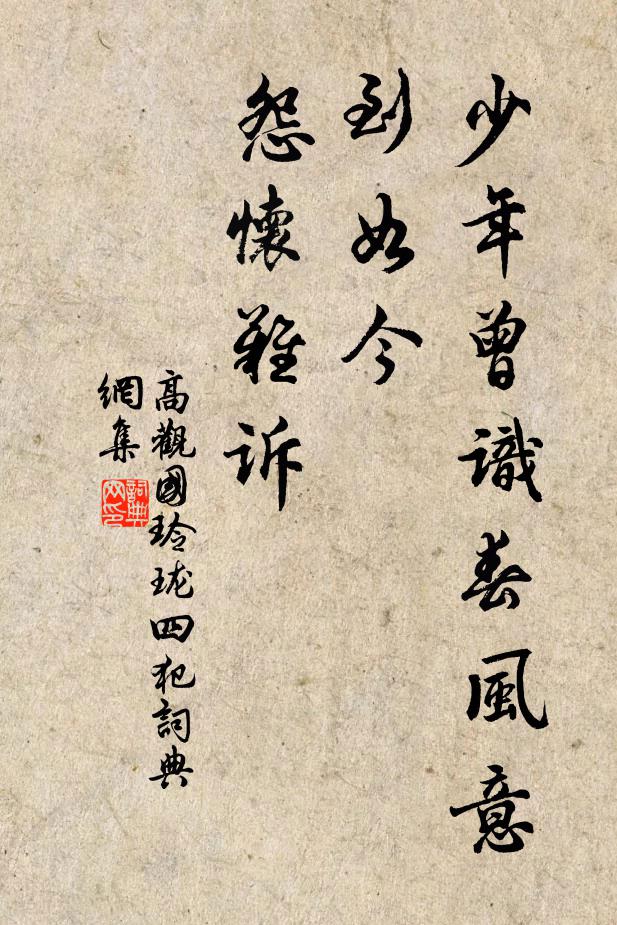 少年曾識春風意
到如今
怨懷難訴
高觀國玲瓏四犯詞典
網集
詞典
网印